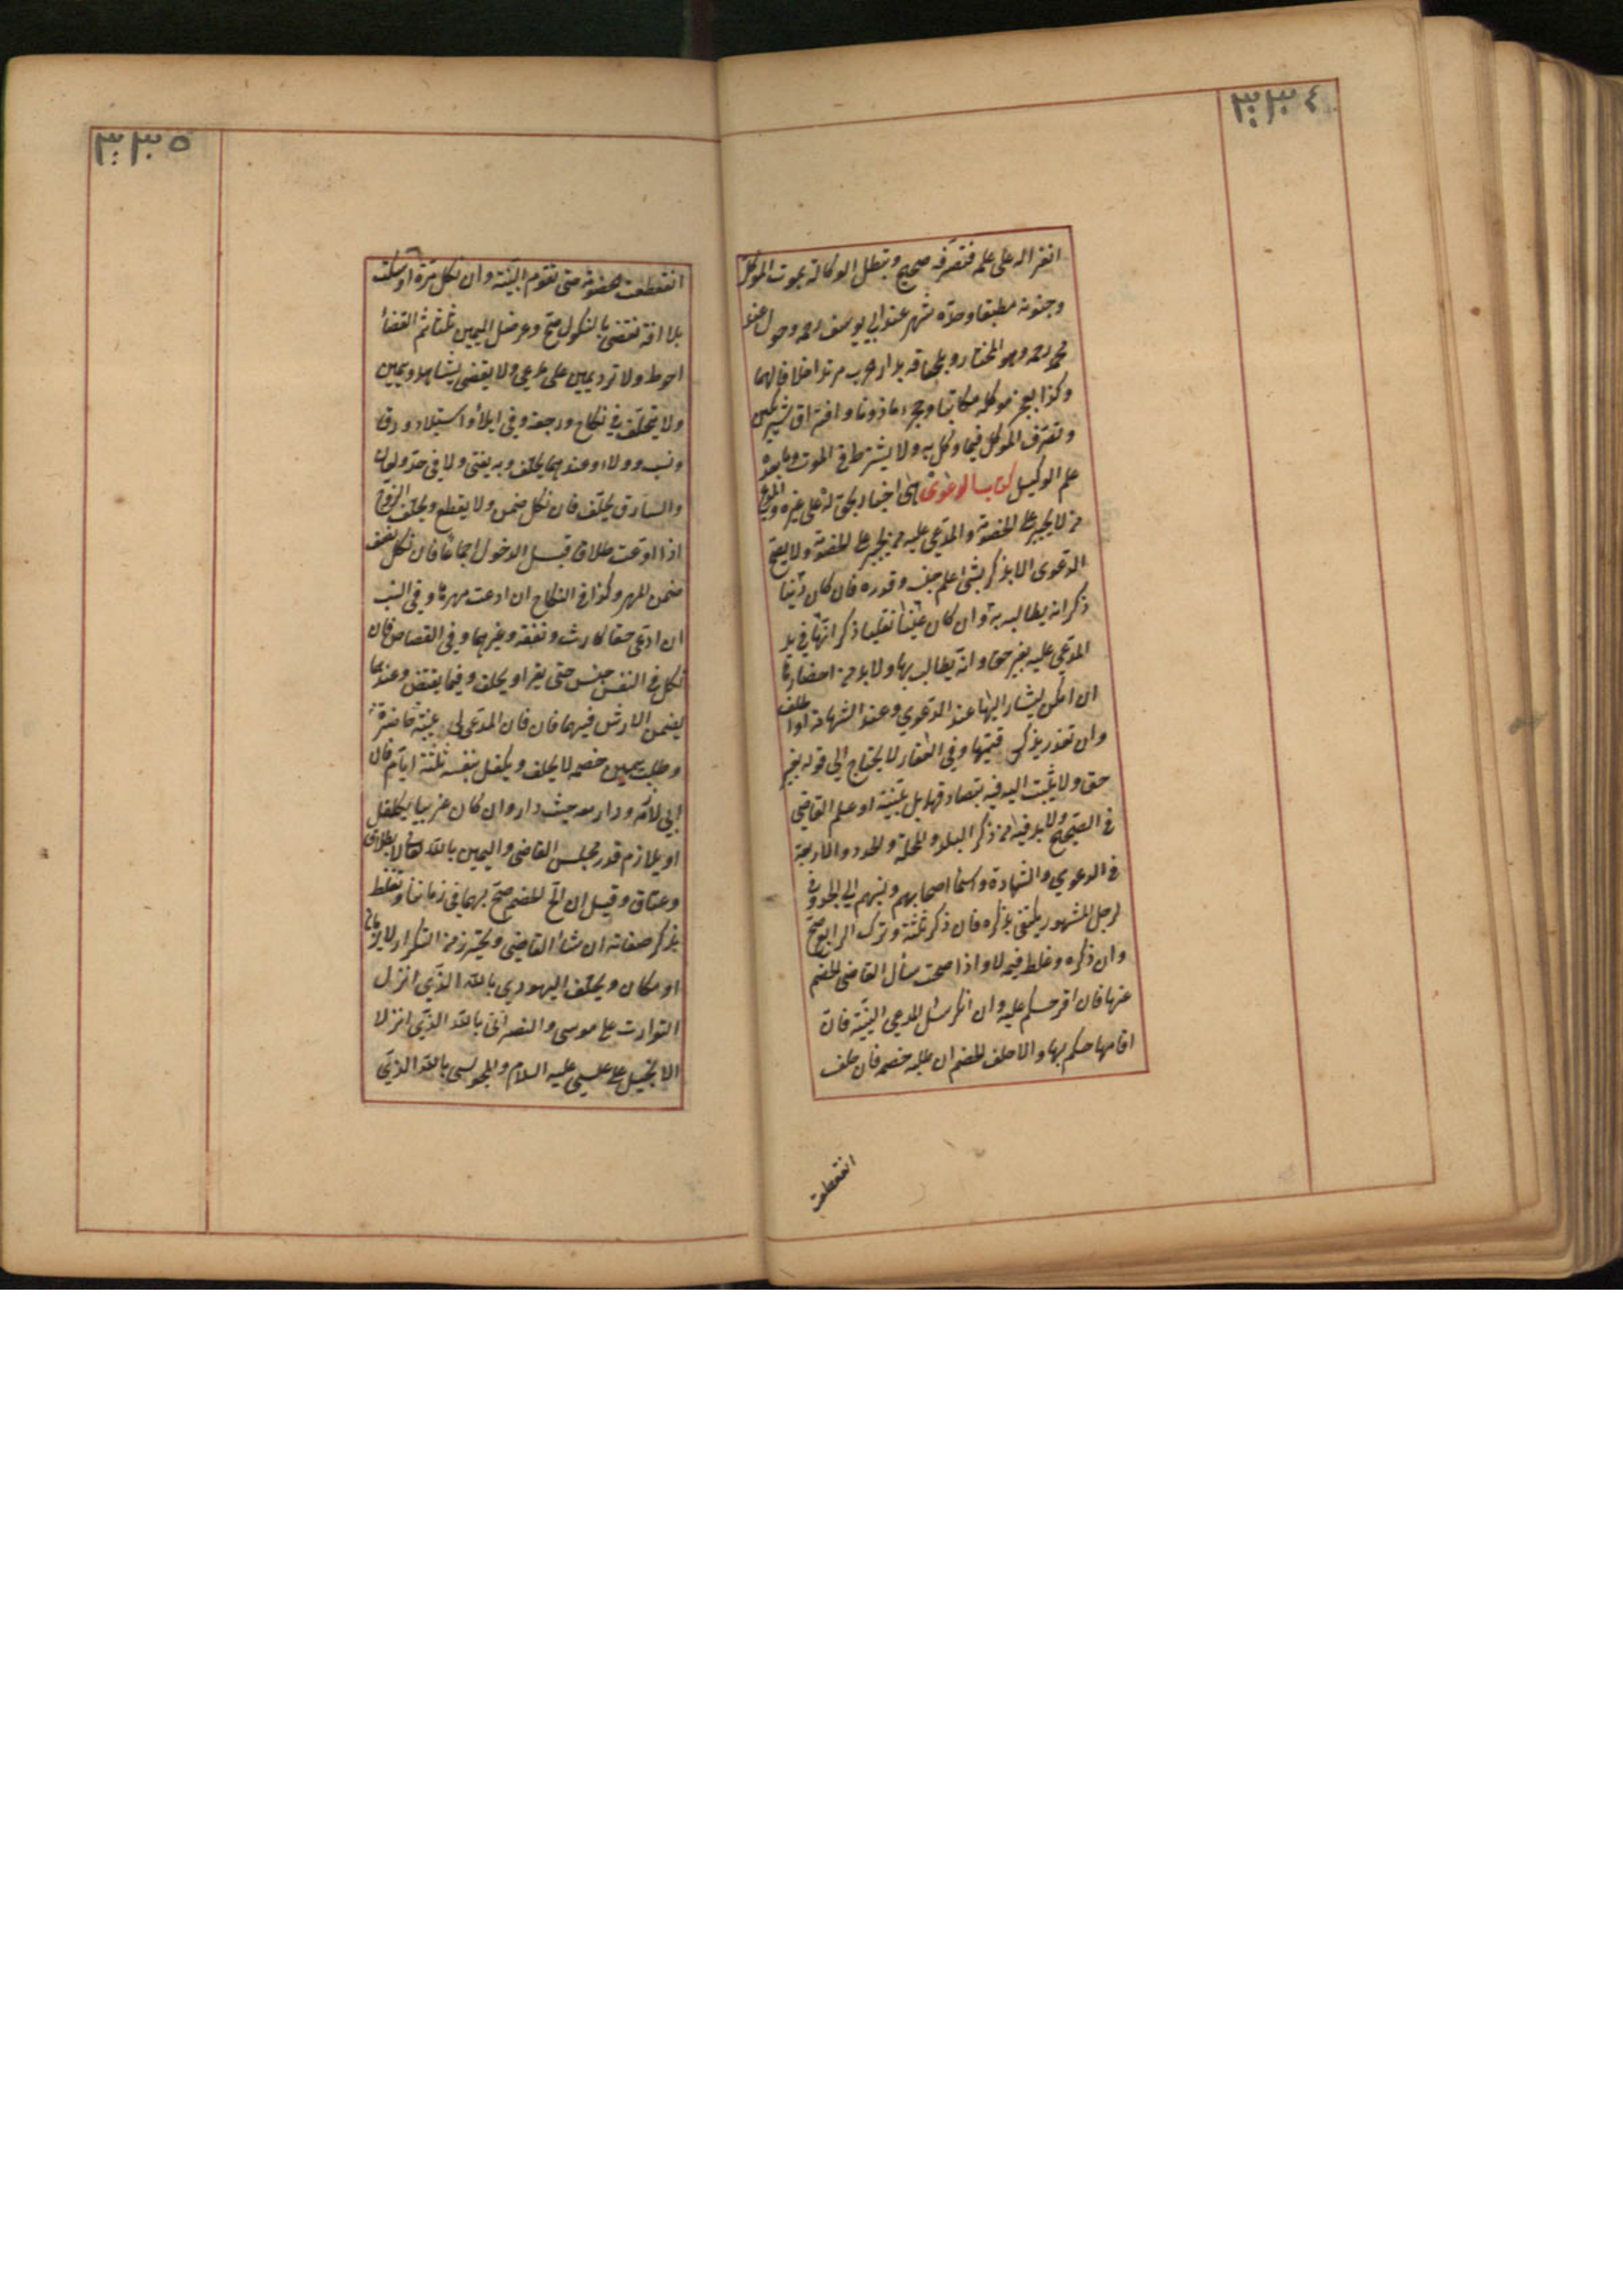 ٣٣٤
انعزاله على علم فتصرفه صحيح وتبطل الوكالة بموت الموكل
وجنونه مطبقا وحده شهر عند ابي يوسف رحمه وحول عند
محمد رحمه وهو المختار وبلحاقه بدار حرب مرتدا خلافا لهما
وكذا بعجز موكله مكاتبا وحجره ماذونا وافتراق شريكين
وتصرف الموكل فيما وكل به ولا يشترط في الموت وما بعده
علم الوكيل كتاب الدعوى هي اخبار بحق له على غيره والمدعي
من لا يجبر على الخصومة والمدعى عليه من يجبر على الخصومة ولا يصح
الدعوى الا بذكر بشئ علم جنسه وقدره فان كان دينا
ذكر انه يطالبه به وان كان عينا نقليا ذكر انها في يد
المدعى عليه بغير حق وانه يطالب بها ولا بد من احضارها
ان امكن ليشار اليها عند الدعوي وعند الشهادة او الحلف
وان تعذر يذكر قيمتها وفي العقار لا يحتاج الى قوله بغير
حق ولا يثبت اليد فيه بتصادقهما بل ببينة او علم القاضي
في الصحيح ولا بد فيه من ذكر البلد والمحلة والحدود الاربعة
في الدعوي والشهادة واسماء اصحابهم ونسبهم الى الجد وفي
الرجل المشهور يكتفى بذكره فان ذكر ثلثة وترك الرابع صح
وان ذكره وغلط فيه لا واذا صحت سأل القاضي الخصم
عنها فان اقر حكم عليه وان انكر سئل المدعي البينة فان
اقامها حكم بها والا حلف الخصم ان طلبه خصمه فان حلف
انقطعت
٣٣٥
انقطعت خصومته حتى تقوم البينة وان نكل مرة او سكت
بلا افة فقضى بالنكول صح وعرض اليمين ثلثا ثم القضاء
احوط ولا ترد يمين على مدعي ولا يقضى بشاهد ويمين
ولا يحلف في نكاح ورجعة وفي ايلاء واستيلاد ورق
ونسب وولاء وعندهما يحلف وبه يفتى ولا في حد ولعان
والسارق يحلف فان نكل ضمن ولا يقطع ويحلف الزوج
اذا ادعت طلاقا قبل الدخول اجماعا فان نكل نصف
ضمن المهر وكذا في النكاح ان ادعت مهرها وفي النسب
ان ادعى حقا كارث ونفقة وغيرهما وفي القصاص فان
نكل في النفس حبس حتى يقر او يحلف وفيما يقتص وعندهما
يضمن الارش فيهما فان قال المدعي لي بينة حاضرة
وطلب يمين خصمه لا يحلف ويكفل بنفسه ثلثة ايام فان
ابى لازمه ودار معه حيث دار وان كان غريبا يكفل
او يلازم قدر مجلس القاضي واليمين بالله تعالى لا بطلاق
وعتاق وقيل ان الح الخصم صح بهما في زماننا وتغلظ
بذكر صفاته ان شاء القاضي ويحترز من التكرار لا بزمان
او مكان ويحلف اليهودي بالله الذي انزل
التوارت على موسى والنصراني بالله الذي انزل
الانجيل على عيسى عليه السلام والمجوسي بالله الذي